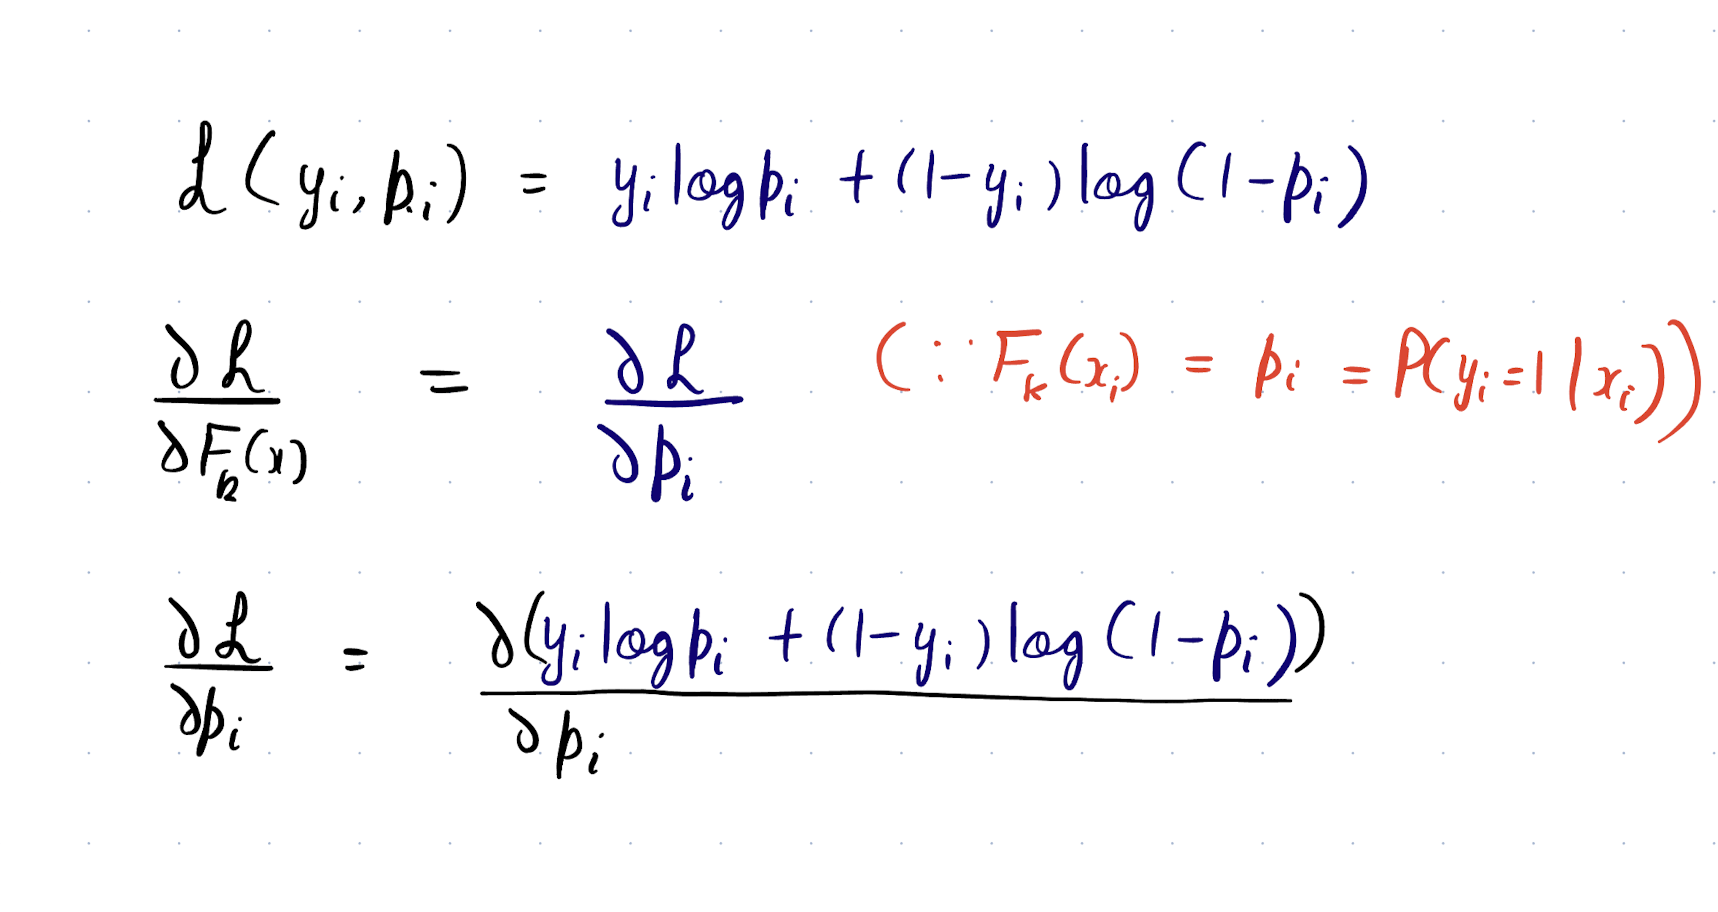 ℒ(yᵢ, pᵢ) = yᵢ log pᵢ + (1-yᵢ) log (1-pᵢ)
∂ℒ/∂Fₖ(x) = ∂ℒ/∂pᵢ (∵ Fₖ(xᵢ) = pᵢ = P(yᵢ=1|xᵢ))
∂ℒ/∂pᵢ = ∂(yᵢ log pᵢ + (1-yᵢ) log (1-pᵢ))/∂pᵢ